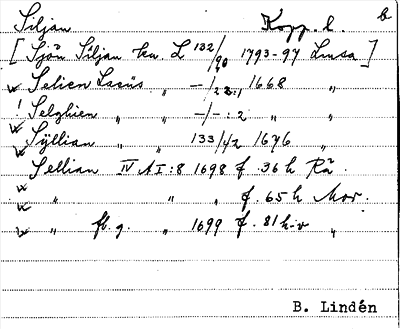 Siljan Kopp. l. b
[ Sjön Siljan ka. L 132/90 1793-97 Lmsa ]
w Selien Lacus „ —/23:, 1668 „
! Selghien „ „ —/-:2 „ „
w Syllian „ „ 133/42 1676 „
w Sellian IV A I:8 1698 f. 36 h Rä.
w „ „ „ f. 65 h Mor.
w „ fl. g. „ 1699 f. 81 h-v „
B. Lindén